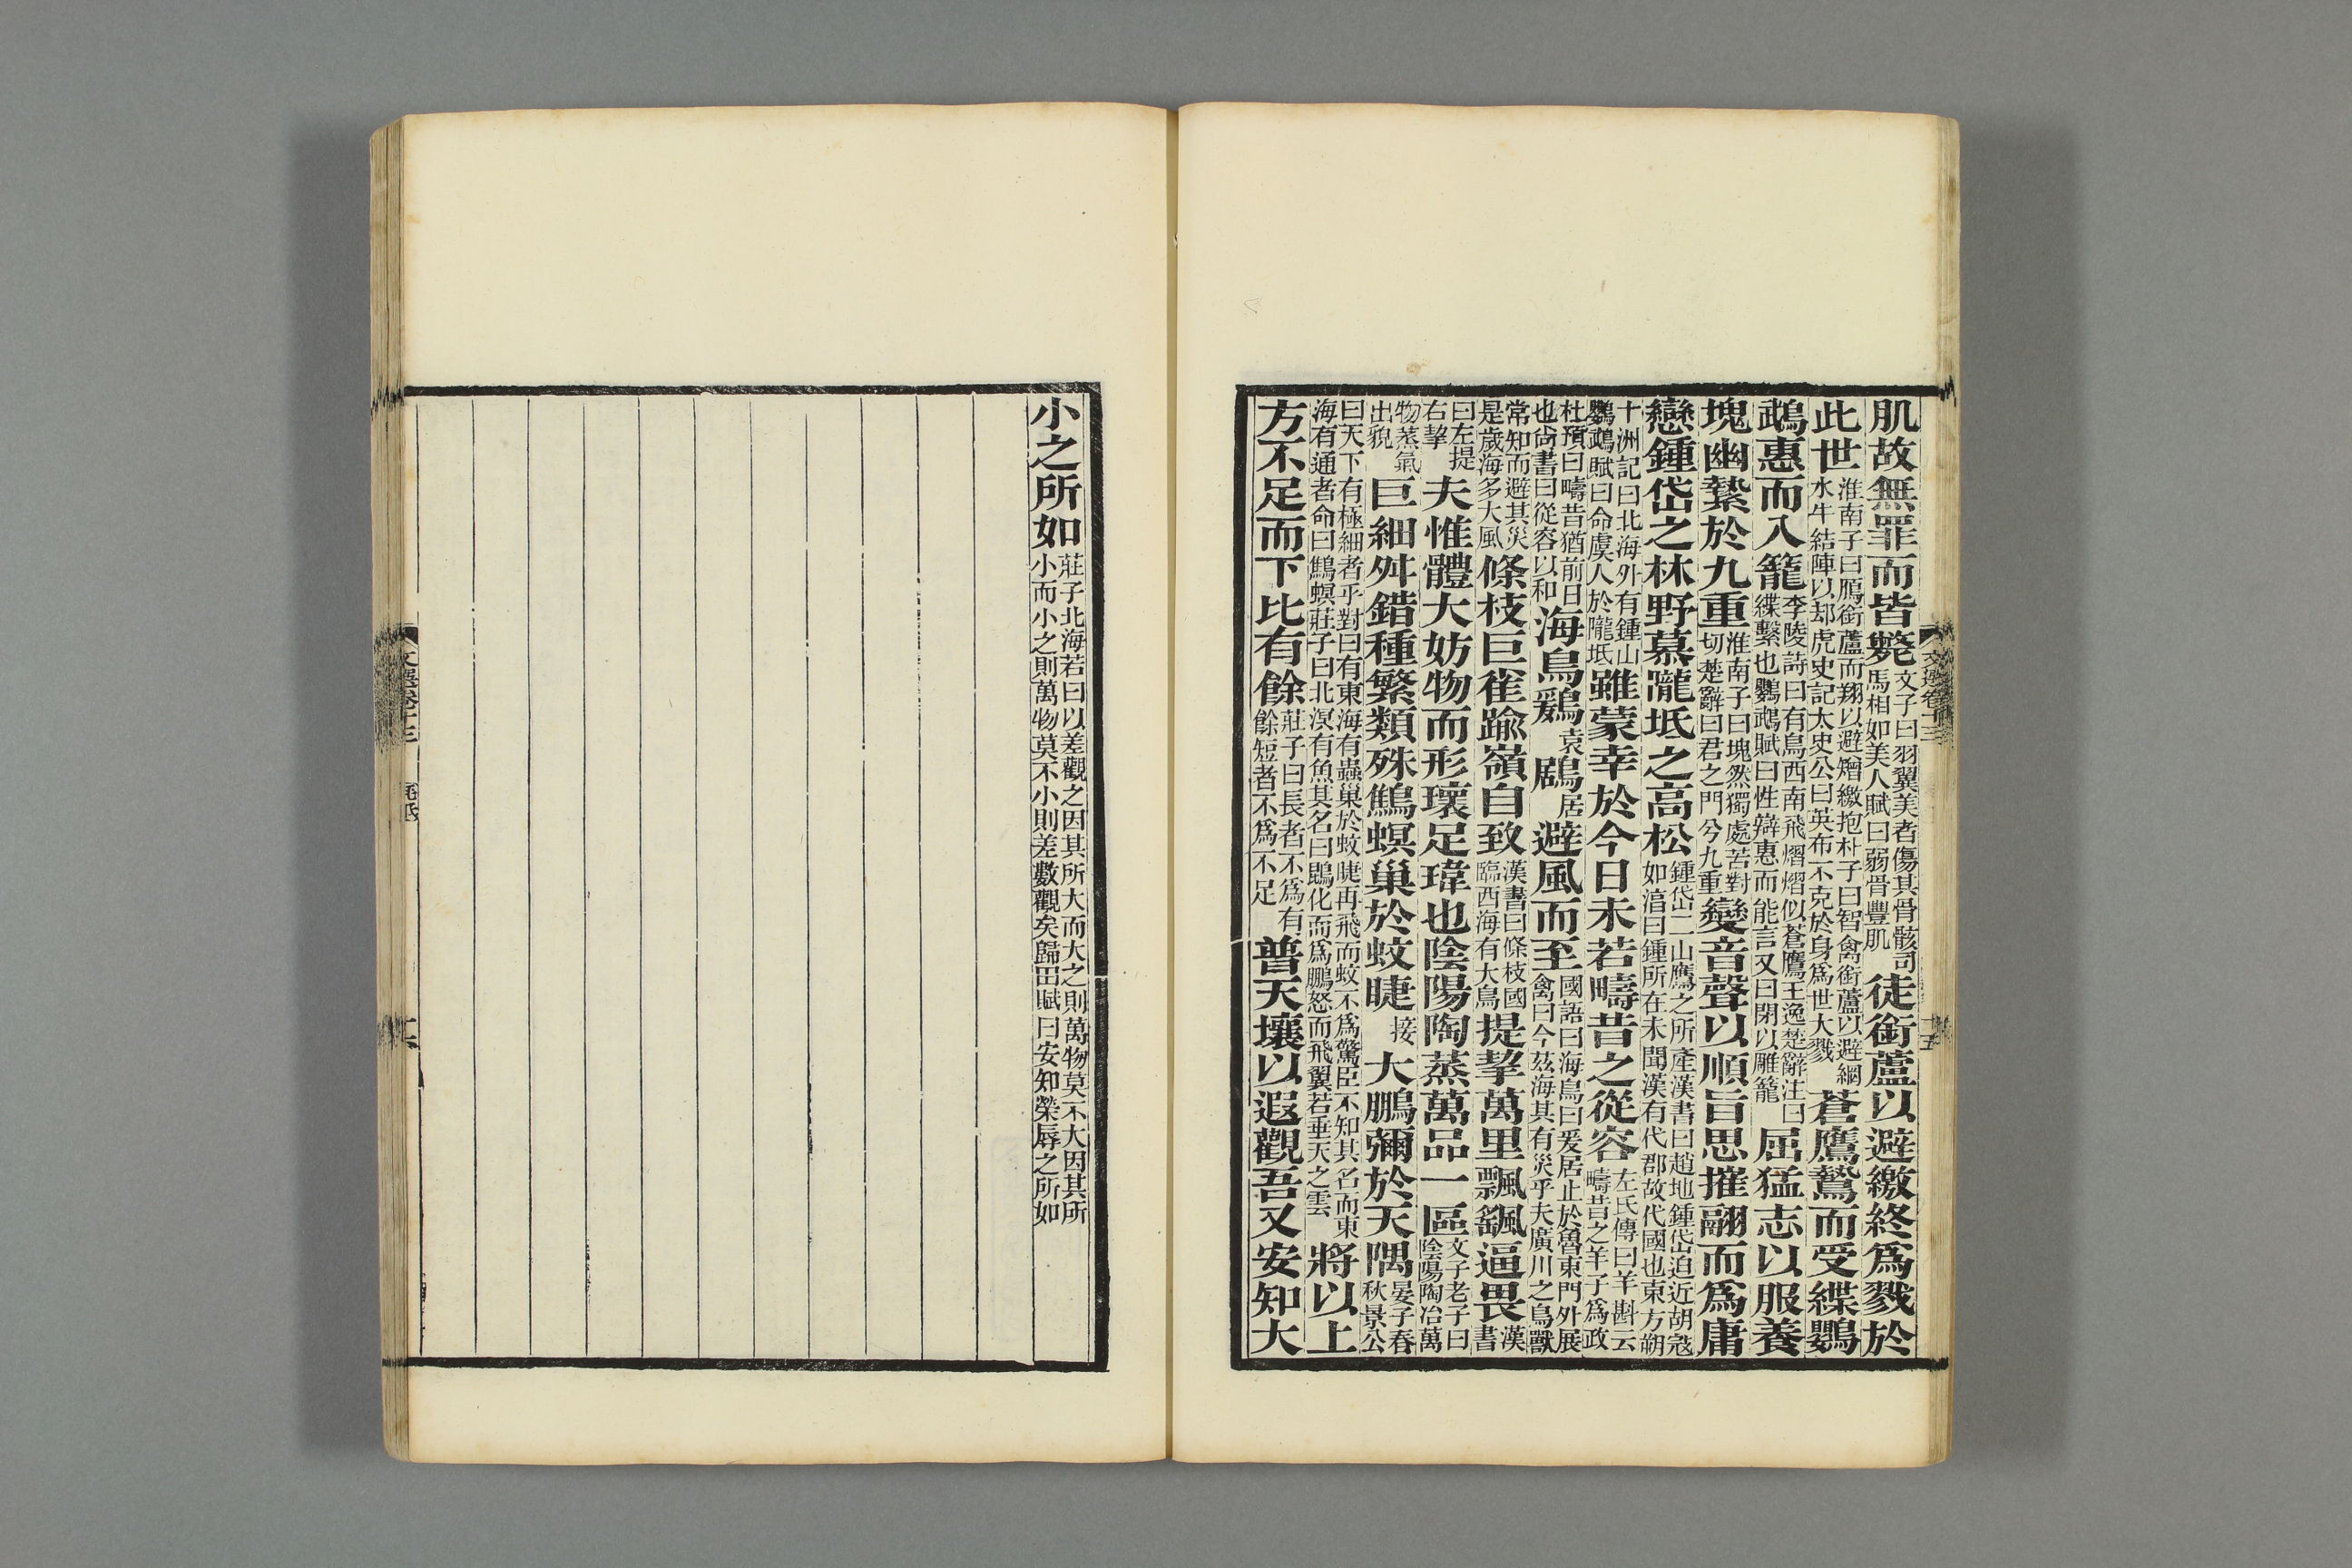 肌故無罪而皆斃文子曰羽翼美者傷其骨骸司馬相如美人賦曰弱骨豐肌徒銜蘆以避繳終爲戮於
此世淮南子曰鴈銜蘆而翔以避矰繳抱朴子曰智禽銜蘆以避網水牛結陣以却虎史記太史公曰英布不克於身爲世大戮蒼鷹鷙而受緤鸚
鵡惠而入籠李陵詩曰有鳥西南飛熠熠似蒼鷹王逸楚辭注曰緤繫也鸚鵡賦曰性辯惠而能言又曰閉以雕籠屈猛志以服養
塊幽縶於九重淮南子曰塊然獨處苦對切楚辭曰君之門兮九重變音聲以順旨思摧翮而爲庸
戀鍾岱之林野慕隴坻之高松鍾岱二山鷹之所產漢書曰趙地鍾岱迫近胡寇如淳曰鍾所在未聞漢有代郡故代國也東方朔
十洲記曰北海外有鍾山鸚鵡賦曰命虞人於隴坻雖蒙幸於今日未若疇昔之從容左氏傳曰羊斟云疇昔之羊子爲政
杜預曰疇昔猶前日也尙書曰從容以和海鳥鶢袁鶋居避風而至國語曰海鳥曰爰居止於魯東門外展禽曰今茲海其有災乎夫廣川之鳥獸
常知而避其災是歲海多大風條枝巨雀踰嶺自致漢書曰條枝國臨西海有大鳥提挈萬里飄颻逼畏漢書
曰左提右挈夫惟體大妨物而形瓌足瑋也陰陽陶蒸萬品一區文子老子曰陰陽陶冶萬
物蒸氣出貌巨細舛錯種繁類殊鷦螟巢於蚊睫接大鵬彌於天隅晏子春秋景公
曰天下有極細者乎對曰有東海有蟲巢於蚊睫再飛而蚊不爲驚臣不知其名而東海有通者命曰鷦螟莊子曰北溟有魚其名曰鵾化而爲鵬怒而飛翼若垂天之雲將以上
方不足而下比有餘莊子曰長者不爲有餘短者不爲不足普天壤以遐觀吾又安知大
文選卷十三
十五
小之所如莊子北海若曰以差觀之因其所大而大之則萬物莫不大因其所小而小之則萬物莫不小則差數觀矣歸田賦曰安知榮辱之所如
文選卷十三